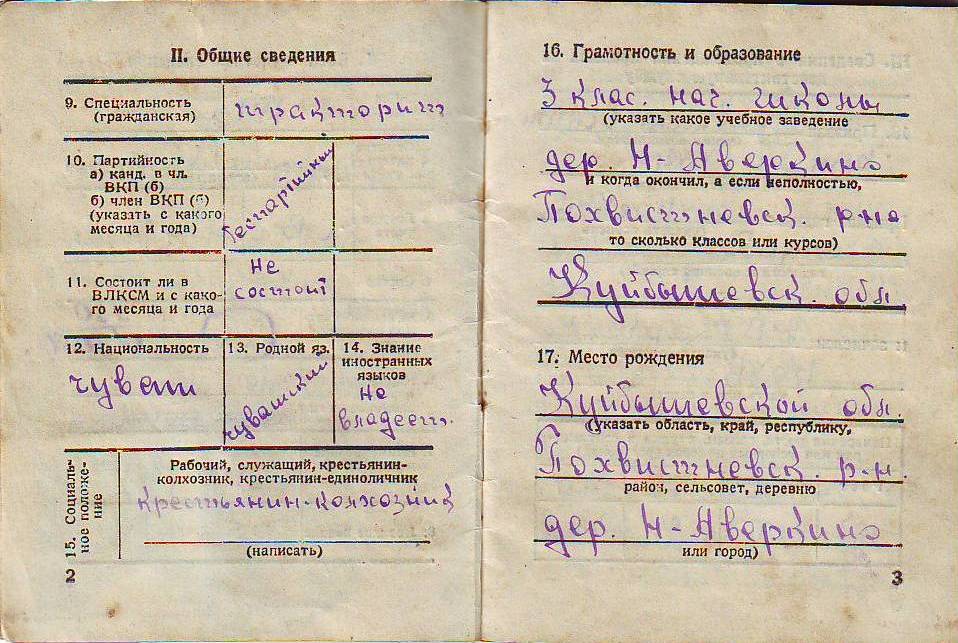 II. Общие сведения
9. Специальность
(гражданская)
тракторист
10. Партийность
а) канд. в чл.
ВКП (б)
б) член ВКП (б)
(указать с какого
месяца и года)
беспартийный
11. Состоит ли в
ВЛКСМ и с како-
го месяца и года
не
состоит
12. Национальность
чуваш
13. Родной яз.
чувашский
14. Знание
иностранных
языков
не
владеет.
15. Социаль-
ное положе-
ние
Рабочий, служащий, крестьянин-
колхозник, крестьянин-единоличник
крестьянин-колхозник
(написать)
2
16. Грамотность и образование
3 клас. нач. школы
(указать какое учебное заведение
дер. Н-Аверкино
и когда окончил, а если неполностью,
Похвистневск. р-на
то сколько классов или курсов)
Куйбышевск. обл.
17. Место рождения
Куйбышевской обл.
(указать область, край, республику,
Похвистневск. р-н.
район, сельсовет, деревню
дер. Н-Аверкино
или город)
3